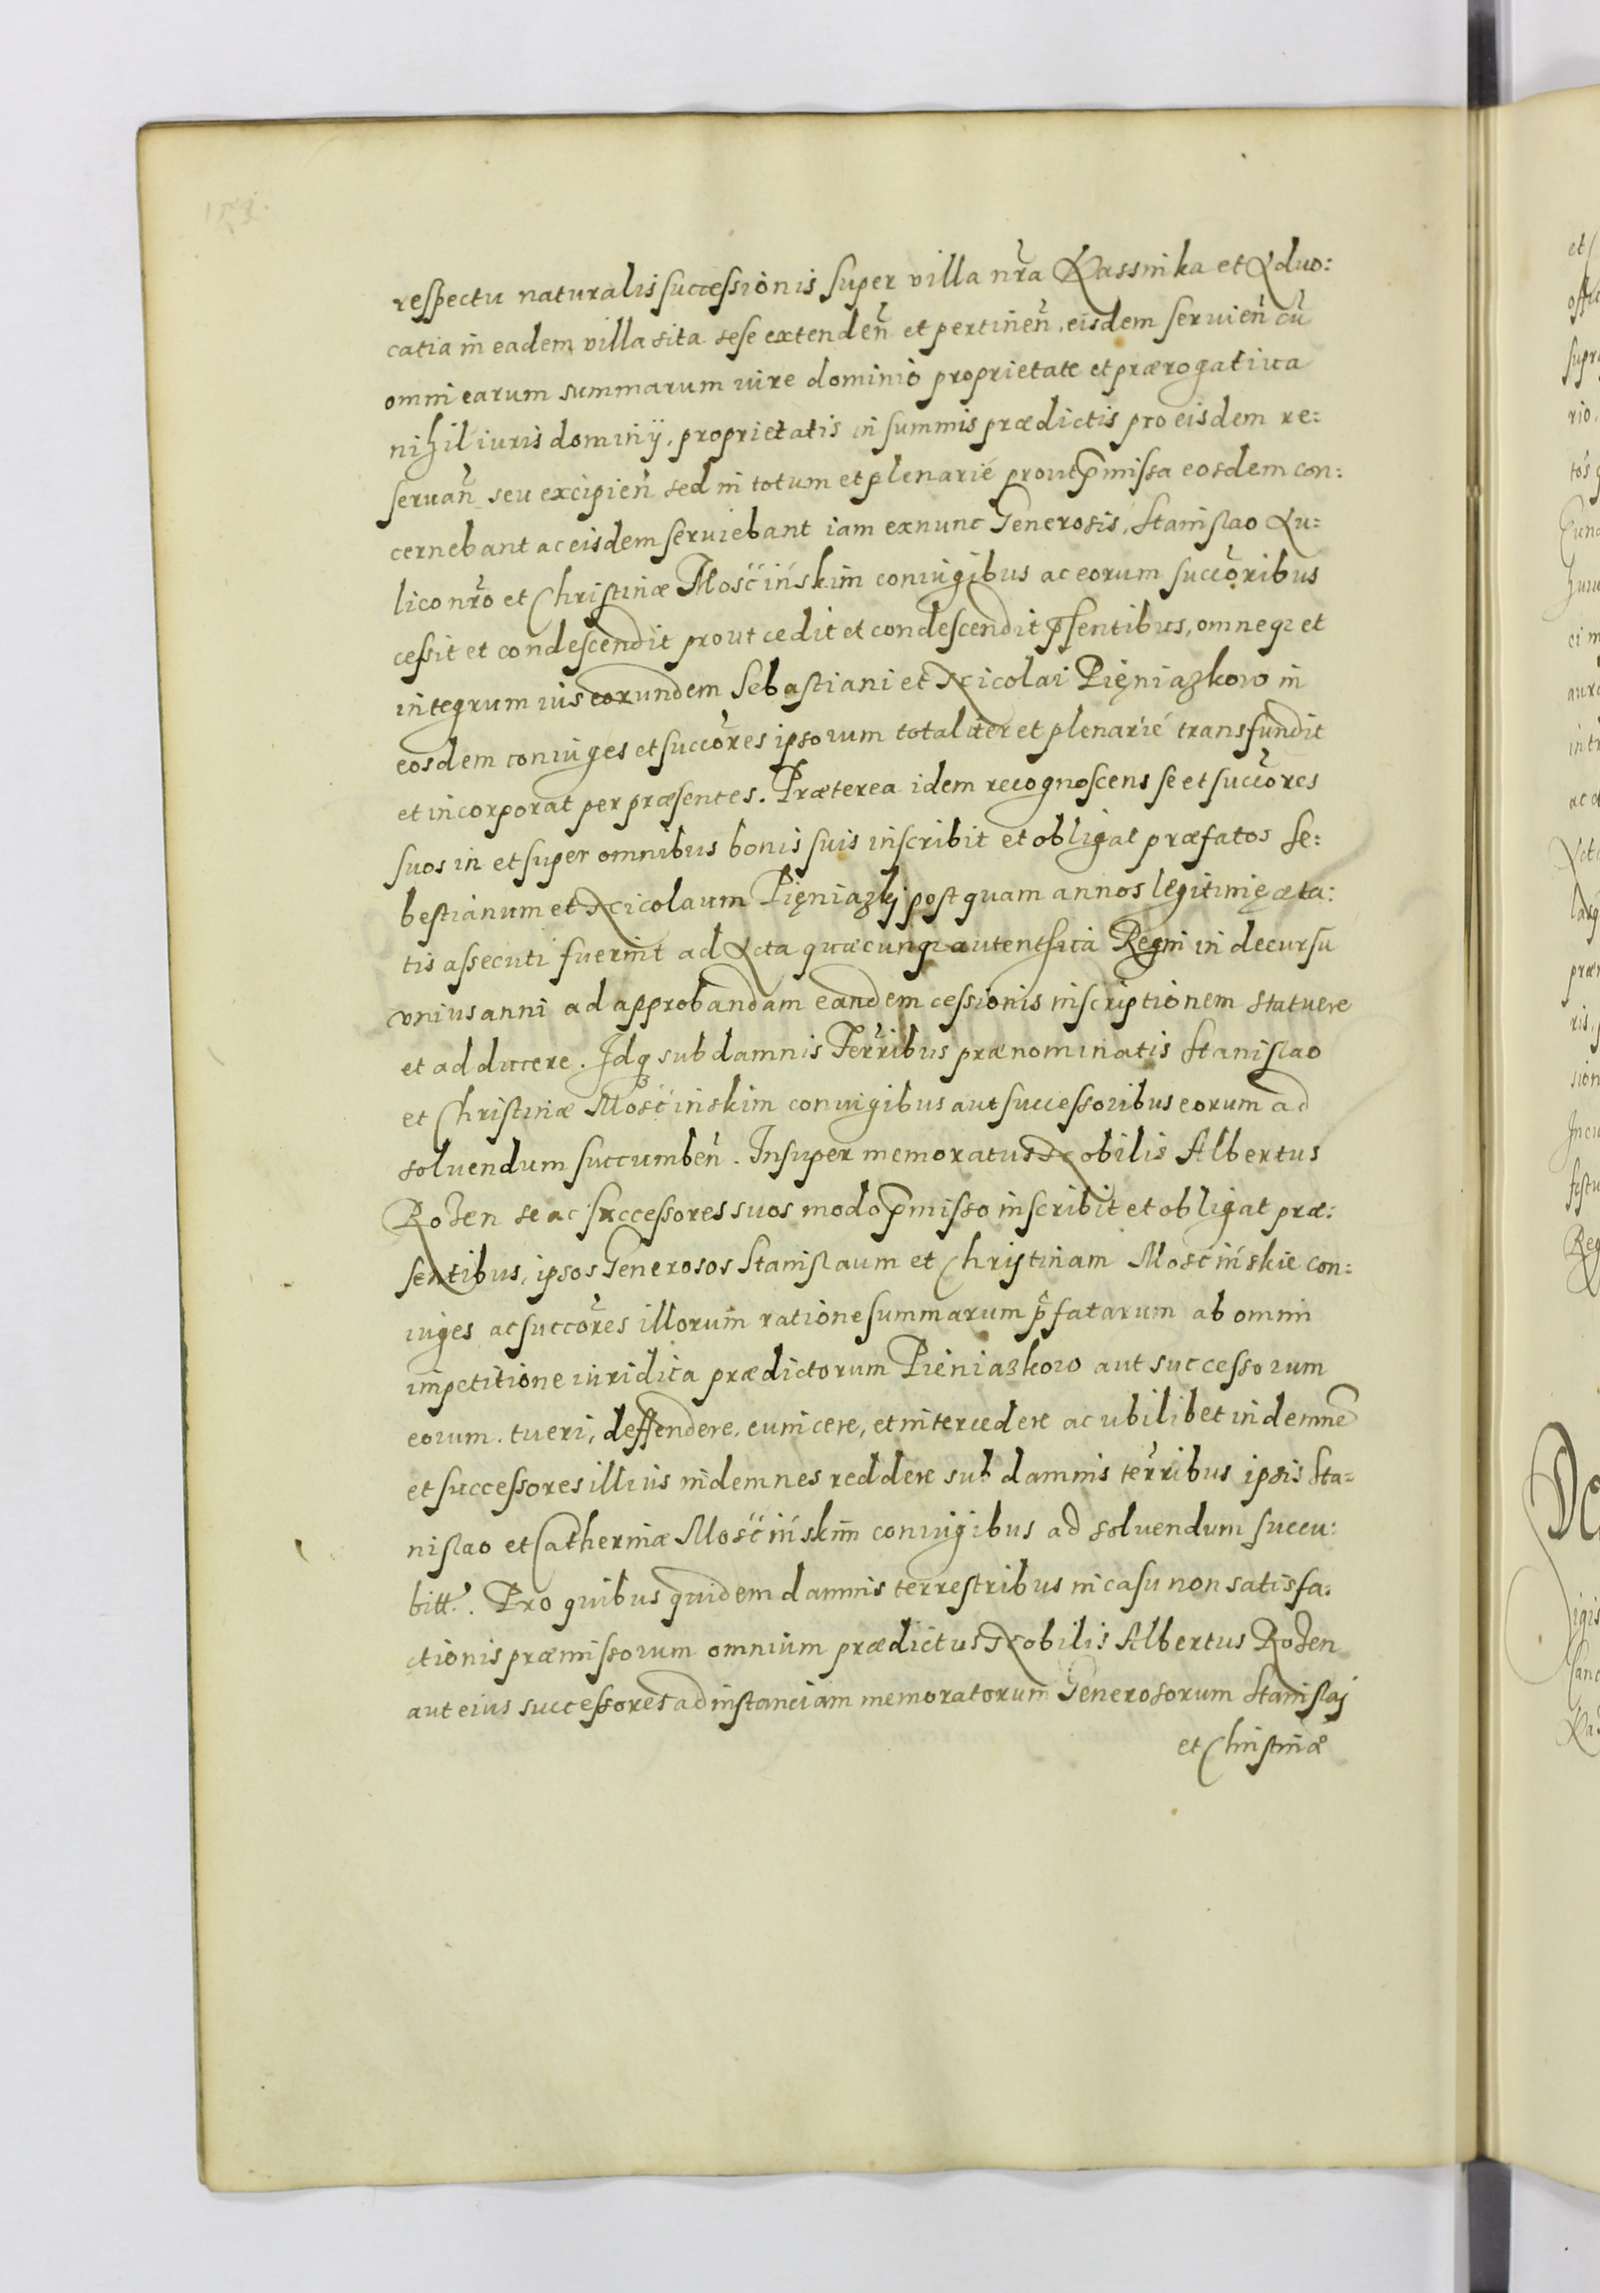 respectu naturalis successionis super villa nr̃a Kassinka et Aduo:
catia in eadem villa sita sese extendeñ et pertineñ, eisdem servieñ cũ
omni earum summarum iure dominio proprietate et prærogativa
nihil iuris dominij, proprietatis in summis prædictis pro eisdem re:
servañ seu excipieñ sed in totum et plenarié prout p̄missa eosdem con:
cernebant ac eisdem serviebant iam exnunc Generosis, Stanislao Au:
lico nr̃o et Christinæ Mośćińskim coniugibus ac eorum succõribus
cessit et condescendit prout cedit et condescendit p̄sentibus, omneqꝫ et
integrum ius eorundem Sebastiani et Nicolai Pięniązkow in
eosdem coniuges et succõres ipsorum totaliter et plenarié transfundit
et incorporat per præsentes. Præterea idem recognoscens se et succõres
suos in et super omnibus bonis suis inscribit et obligat præfatos Se:
bestianum et Nicolaum Pięniązkj postquam annos legitimę æta:
tis assecuti fuerint ad Acta quæcunqꝫ autentica Regni in decursu
unius anni ad approbandam eandem cessionis inscriptionem statuere
et adducere. Idqꝫ sub damnis Terr̃ibus prænominatis Stanislao
et Christinæ Mośćinskim coniugibus aut successoribus eorum ad
solvendum succumbeñ. Insuper memoratus Nobilis Albertus
Rożen se ac successores suos modo p̄misso inscribit et obligat præ:
sentibus, ipsos Generosos Stanislaum et Christinam Mośćińskie con:
iuges ac succõres illorum ratione summarum p̄fatarum ab omni
impetitione iuridica prædictorum Pieniazkow aut successorum
eorum. tueri, deffendere, evincere, et intercedere ac ubilibet indemnẽ
et successores illius indemnes reddere sub damnis terr̃ibus ipsis Sta=
nislao et Catherinæ Mośćińskim coniugibus ad solvendum succu:
bitt. Pro quibus quidem damnis terrestribus in casu non satisfa:
ctionis præmissorum omnium prædictus Nobilis Albertus Rożen
aut eius successores ad instanciam memoratorum Generosorum Stanislaj
et Christinæ